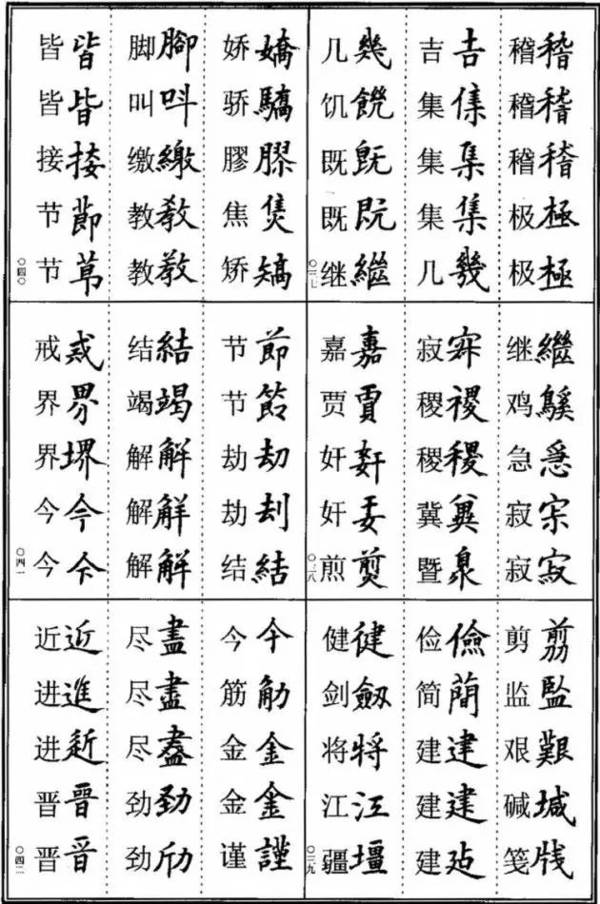 稽稽
稽稽
稽稽
极極
极極
吉吉
集㑫
集集
集集
几幾
几幾
饥饑
既既
既既
继繼
〇三七
继繼
鸡鷄
急急
寂宗
寂寂
寂寂
稷禝
稷稷
冀冀
暨臮
嘉嘉
贾賈
奸奸
奸奸
煎煎
〇三八
剪剪
监監
艰艱
碱堿
笺牋
俭儉
简蕳
建建
建建
建建
健健
剑劔
将將
江江
疆壃
〇三九
娇嬌
骄驕
膠膠
焦焦
矫矯
脚腳
叫呌
缴繳
教教
教教
皆皆
皆皆
接接
节節
节莭
〇四〇
节節
节節
劫劫
劫刦
结結
结結
竭竭
解解
解觧
解解
戒戒
界界
界堺
今今
今今
〇四一
今今
筋筋
金金
金金
谨謹
尽盡
尽盡
尽盡
劲勁
劲劤
近近
进進
进进
晋晉
晋晋
〇四二